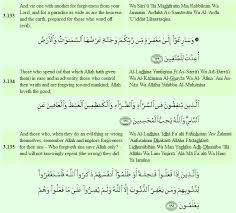 And vie one with another for forgiveness from your
Lord, and for a paradise as wide as are the heavens
3.133 and the earth, prepared for those who ward off
(evil);
Wa Sāri`ū 'Ilá Maghfiratin Min Rabbikum Wa
Jannatin `Arđuhā As-Samāwātu Wa Al-'Arđu
'U`iddat Lilmuttaqīna
وَسَارِعُوا إِلَى مَغْفِرَةٍ مِنْ رَبِّكُمْ وَجَنَّةٍ عَرْضُهَا السَّمَوَاتُ وَالْأَرْضُ
أُعِدَّتْ لِلْمُتَّقِينَ
Those who spend (of that which Allah hath given
them) in ease and in adversity, those who control
3.134 their wrath and are forgiving toward mankind; Allah
loveth the good;
Al-Ladhīna Yunfiqūna Fī As-Sarrā'i Wa Ađ-Đarrā'i
Wa Al-Kāžimīna Al-Ghayža Wa Al-`Āfīna `Ani An-
Nāsi Wa Allāhu Yuĥibbu Al-Muĥsinīna
الَّذِينَ يُنْفِقُونَ فِي السَّرَّاءِ وَالضَّرَّاءِ وَالْكَاظِمِينَ الْغَيْظَ وَالْعَافِينَ عَنِ
النَّاسِ وَاللَّهُ يُحِبُّ الْمُحْسِنِينَ
And those who, when they do an evil thing or wrong
themselves, remember Allah and implore forgiveness
3.135 for their sins - Who forgiveth sins save Allah only? -
and will not knowingly repeat (the wrong) they did.
Wa Al-Ladhīna 'Idhā Fa`alū Fāĥishatan 'Aw Žalamū
'Anfusahum Dhakarū Allāha Fāstaghfarū
Lidhunūbihim Wa Man Yaghfiru Adh-Dhunūba 'Illā
Allāhu Wa Lam Yuşirrū `Alá Mā Fa`alū Wa Hum
Ya`lamūna
وَالَّذِينَ إِذَا فَعَلُوا فَاحِشَةً أَوْ ظَلَمُوا أَنْفُسَهُمْ ذَكَرُوا اللَّهَ فَاسْتَغْفَرُوا
لِذُنُوبِهِمْ وَمَنْ يَغْفِرُ الذُّنُوبَ إِلَّا اللَّهُ وَلَمْ يُصِرُّوا عَلَى مَا
فَعَلُوا وَهُمْ يَعْلَمُونَ